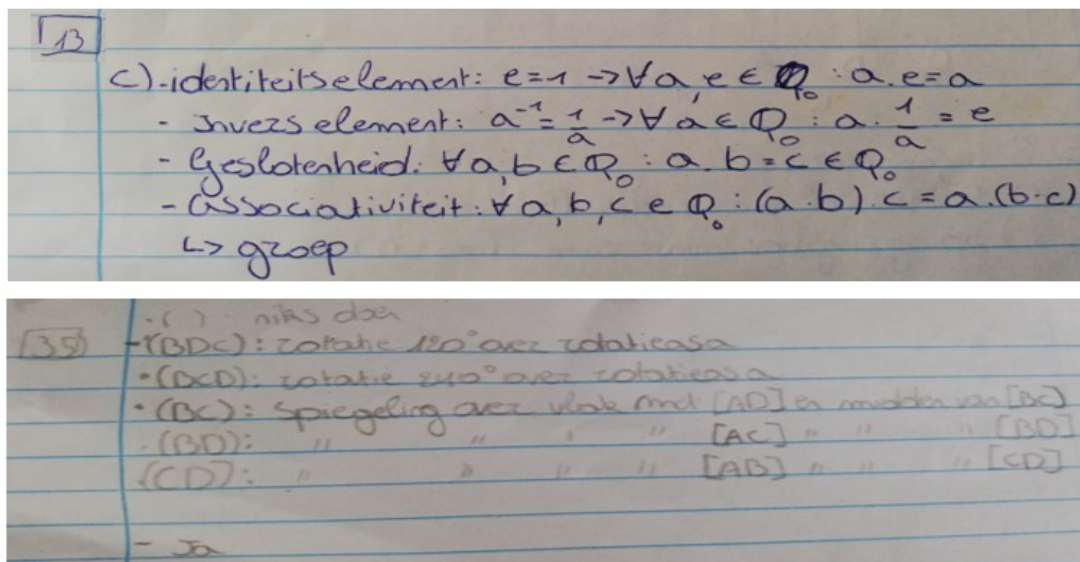 13
c) - identiteitselement: e=1 -> ∀ a,e ∈ ℚ₀ : a.e=a
- Invers element: a⁻¹ = 1/a -> ∀ a ∈ ℚ₀ : a . 1/a = e
- Geslotenheid: ∀ a,b ∈ ℚ₀ : a.b = c ∈ ℚ₀
- Associativiteit: ∀ a,b,c ∈ ℚ₀ : (a.b).c = a.(b.c)
↳ groep
·( ) niks doen
35 - (BDC): rotatie 120° over rotatieas a
·(BCD): rotatie 240° over rotatieas a
·(BC): Spiegeling over vlak met [AD] en midden van [BC]
·(BD): " " " " [AC] " " " [BD]
(CD): " " " " [AB] " " " [CD]
- Ja